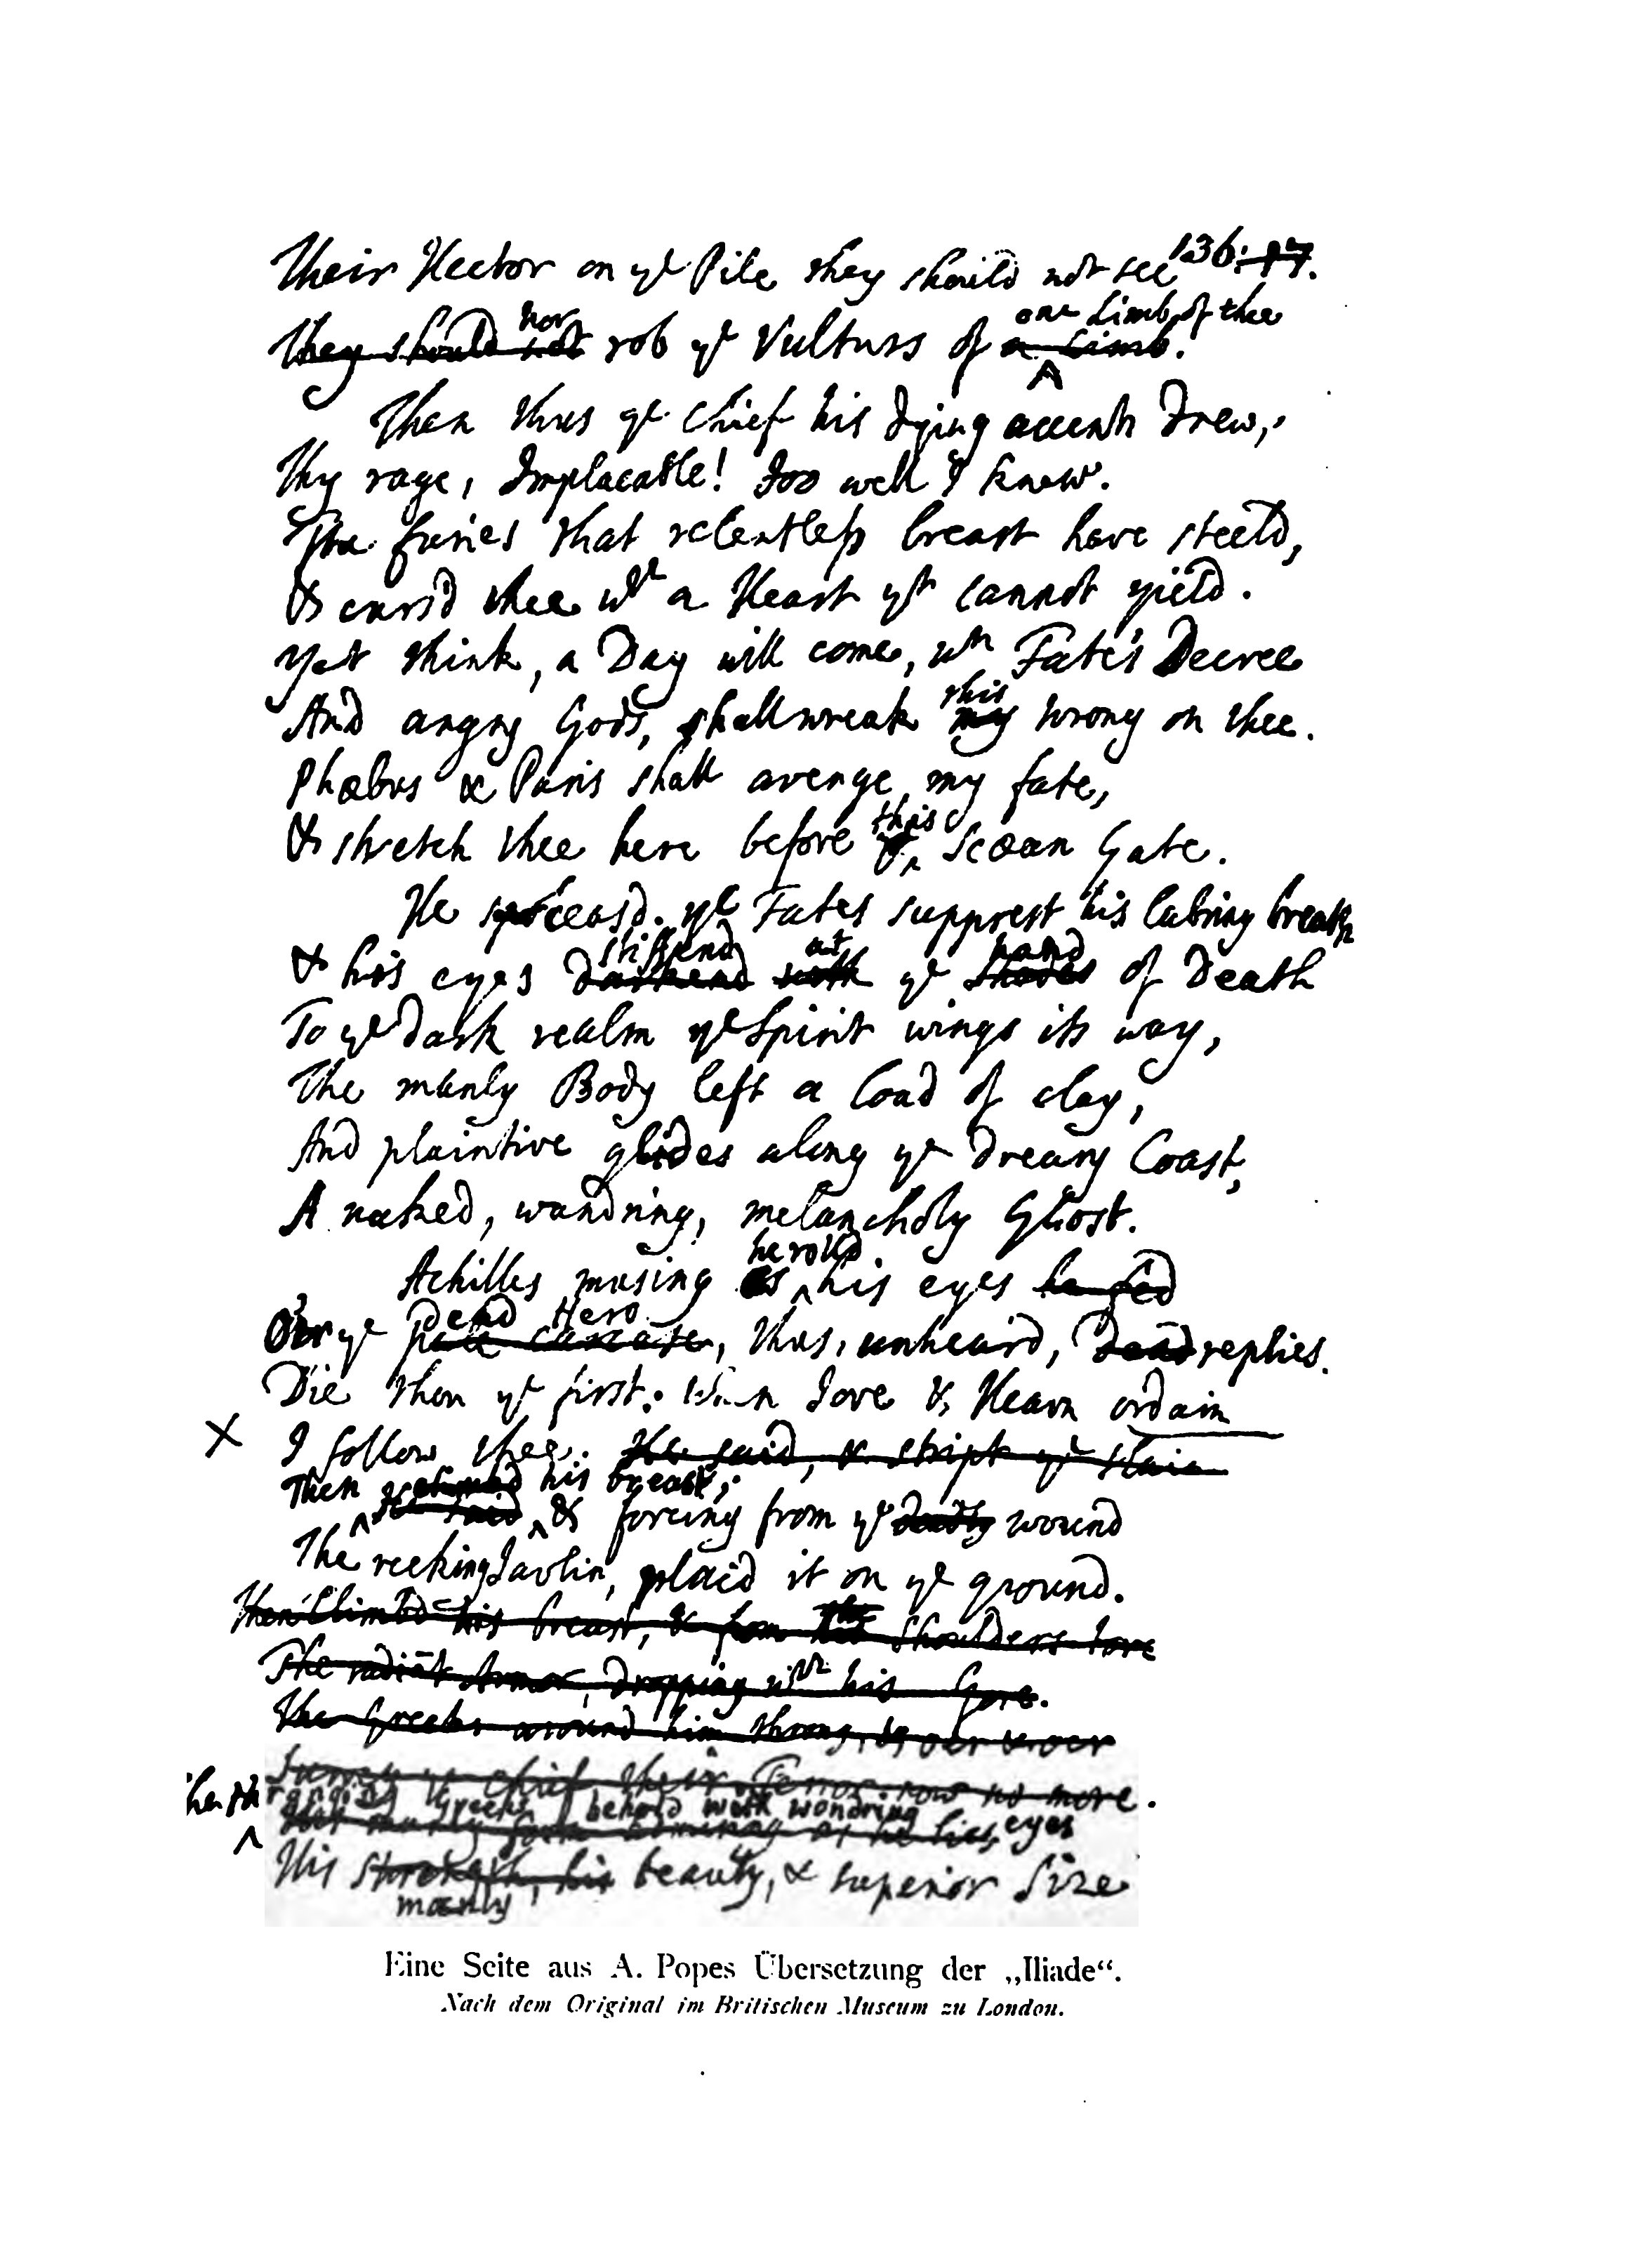 Their Hector on yͤ Pile they should not see 136. 17.
nor one Limb of thee
They should not rob yͤ Vulturs of a Limb.
Then thus yͤ Chief his dying accents drew,
Thy rage, Implacable! too well I knew.
The furies that relentless breast have steeld,
& cursd thee wth a Heart yt cannot yield.
Yet think, a Day will come, wn Fate's Decree
And angry Gods, shall wreak this my wrong on thee.
Phœbus & Paris shall avenge my fate,
& stretch thee here before this yͤ Scœan Gate.
He ceasd. yͤ Fates supprest his labring breath
stiffend at hand
& his eyes darkend with yͤ shades of Death
To yͤ dark realm yͤ Spirit wings its way,
The manly Body left a load of clay,
And plaintive glides along yͤ dreary Coast,
A naked, wandring, melancholy Ghost.
he rolld
Achilles musing as his eyes he fed
dead Hero
O'er yͤ pale carcase, thus, unheard, dead replies.
Die thou yͤ first: When Jove & Heavn ordain
X I follow thee. He said, & stript yͤ slain
Then his breast;
He said & forcing from yͤ deadly wound
The reeking Javlin, plaid it on yͤ ground.
Then Climbd his breast, & from the his shoulders tore
The radiāt Armor, dropping wth his Gore.
The Greeks around him throng, & oer & oer
Survey yͤ Chief, their Terror now no more.
The thronging Greeks behold with wondring eyes
His manly form admiring as he lies,
His strength, his beauty, & superior Size
manly
Eine Seite aus A. Popes Übersetzung der „Iliade“.
Nach dem Original im Britischen Museum zu London.